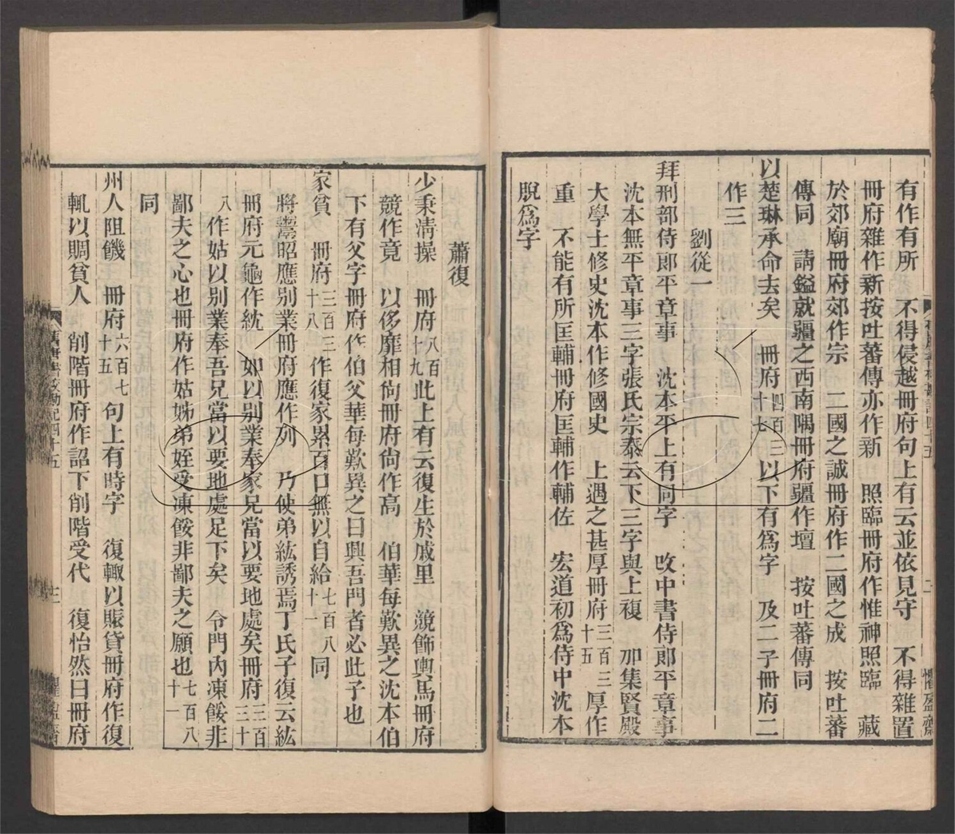 有作有所　不得侵越冊府句上有云並依見守　不得雜置
冊府雜作新按吐蕃傳亦作新　照臨冊府作惟神照臨　藏
於郊廟冊府郊作宗　二國之誠冊府作二國之成　按吐蕃
傳同　請鎰就疆之西南隅冊府疆作壇　按吐蕃傳同
以楚琳承命去矣　冊府四百三十七以下有爲字　及二子冊府二
作三
劉從一
拜刑部侍郎平章事　沈本平上有同字　攺中書侍郎平章事
沈本無平章事三字張氏宗泰云下三字與上複　加集賢殿
大學士修史沈本作修國史　上遇之甚厚冊府三百三十五厚作
重　不能有所匡輔冊府匡輔作輔佐　宏道初爲侍中沈本
脫爲字
蕭復
少秉淸操　冊府八百十九此上有云復生於戚里　競飾輿馬冊府
競作竟　以侈靡相尙冊府尙作高　伯華每歎異之沈本伯
下有父字冊府作伯父華每歎異之曰興吾門者必此子也
家貧　冊府三百三十八作復家累百口無以自給七百八十一同
將鬻昭應別業冊府應作列　乃使弟紘誘焉丁氏子復云紘
冊府元龜作統　如以別業奉家兄當以要地處矣冊府三百三十
八作姑以別業奉吾兄當以要地處足下矣　令門內凍餒非
鄙夫之心也冊府作姑姊弟姪受凍餒非鄙夫之願也七百八十一
同
州人阻饑　冊府六百七十五句上有時字　復輙以賑貸冊府作復
輒以賙貧人　削階冊府作詔下削階受代　復怡然曰冊府
舊唐書校勘記四十五